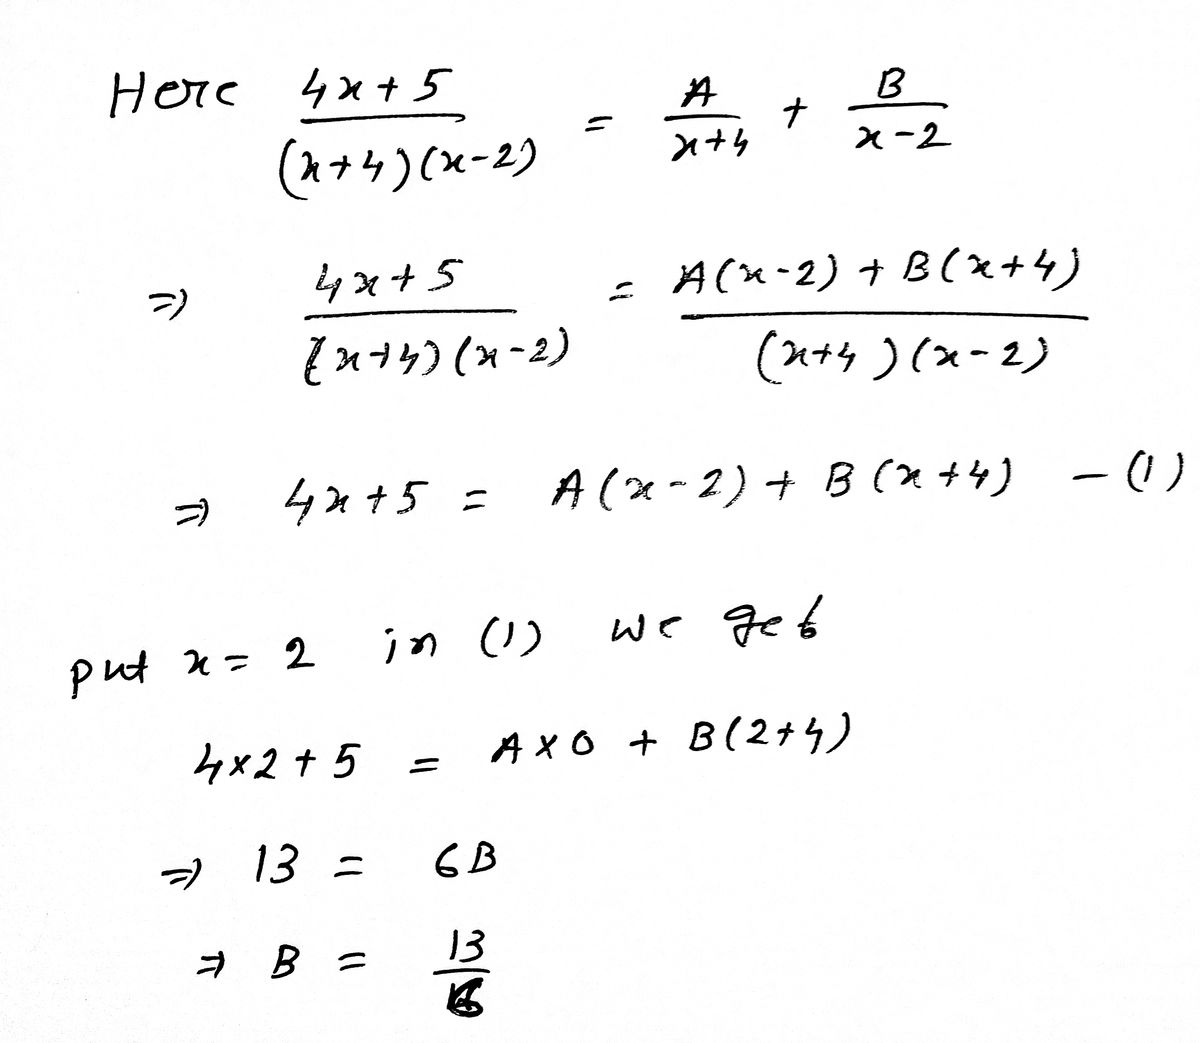 Here (4x+5)/((x+4)(x-2)) = A/(x+4) + B/(x-2)
=> (4x+5)/((x+4)(x-2)) = (A(x-2) + B(x+4))/((x+4)(x-2))
=> 4x+5 = A(x-2) + B(x+4) - (1)
put x = 2 in (1) we get
4×2+5 = A×0 + B(2+4)
=> 13 = 6B
=> B = 13/6